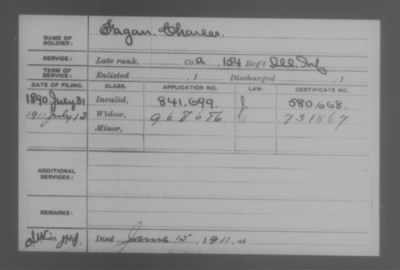 NAME OF SOLDIER: Fagan, Charles
SERVICE: Late rank, Co. A, 154 Reg't Ill. Inf
TERM OF SERVICE: Enlisted , 1 Discharged , 1
DATE OF FILING. CLASS. APPLICATION NO. LAW. CERTIFICATE NO.
1890 July 31 Invalid, 841.699. J 580.668.
1911 July 13 Widow, 968686 731567
Minor,
ADDITIONAL SERVICES:
REMARKS:
Died June 15, 1911, at